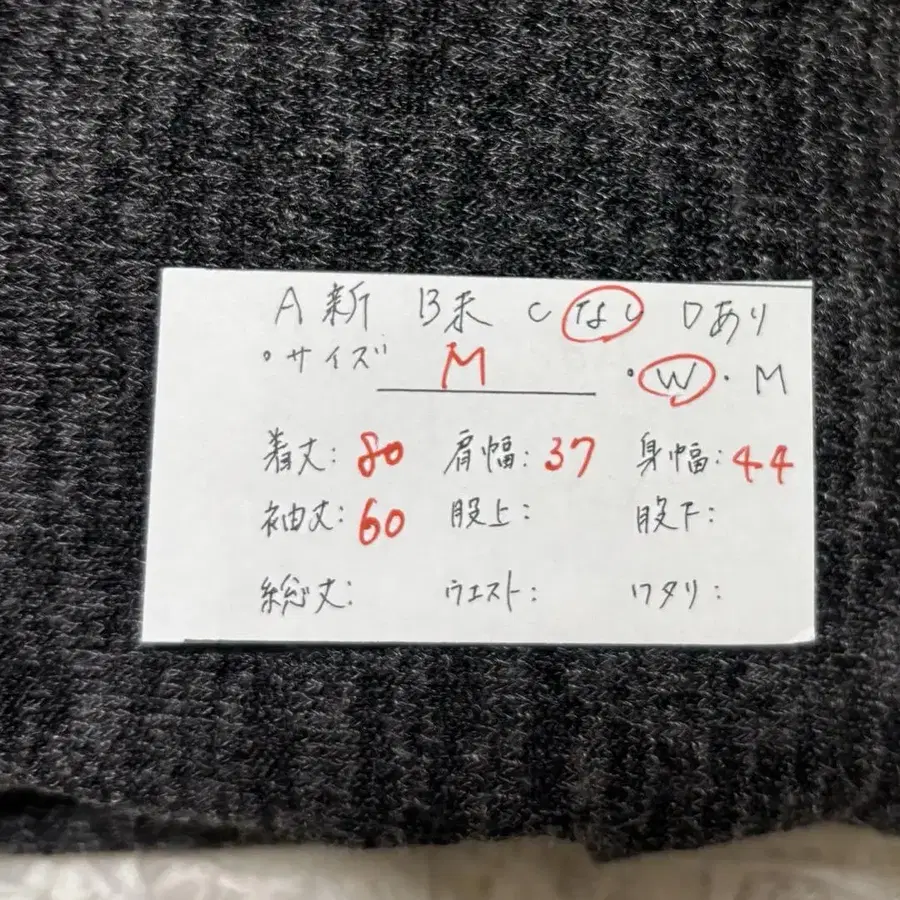 A 新 B未 C なし Dあり
・サイズ M ・W・M
着丈:80 肩幅:37 身幅:44
袖丈:60 股上: 股下:
総丈: ウエスト: ワタリ: